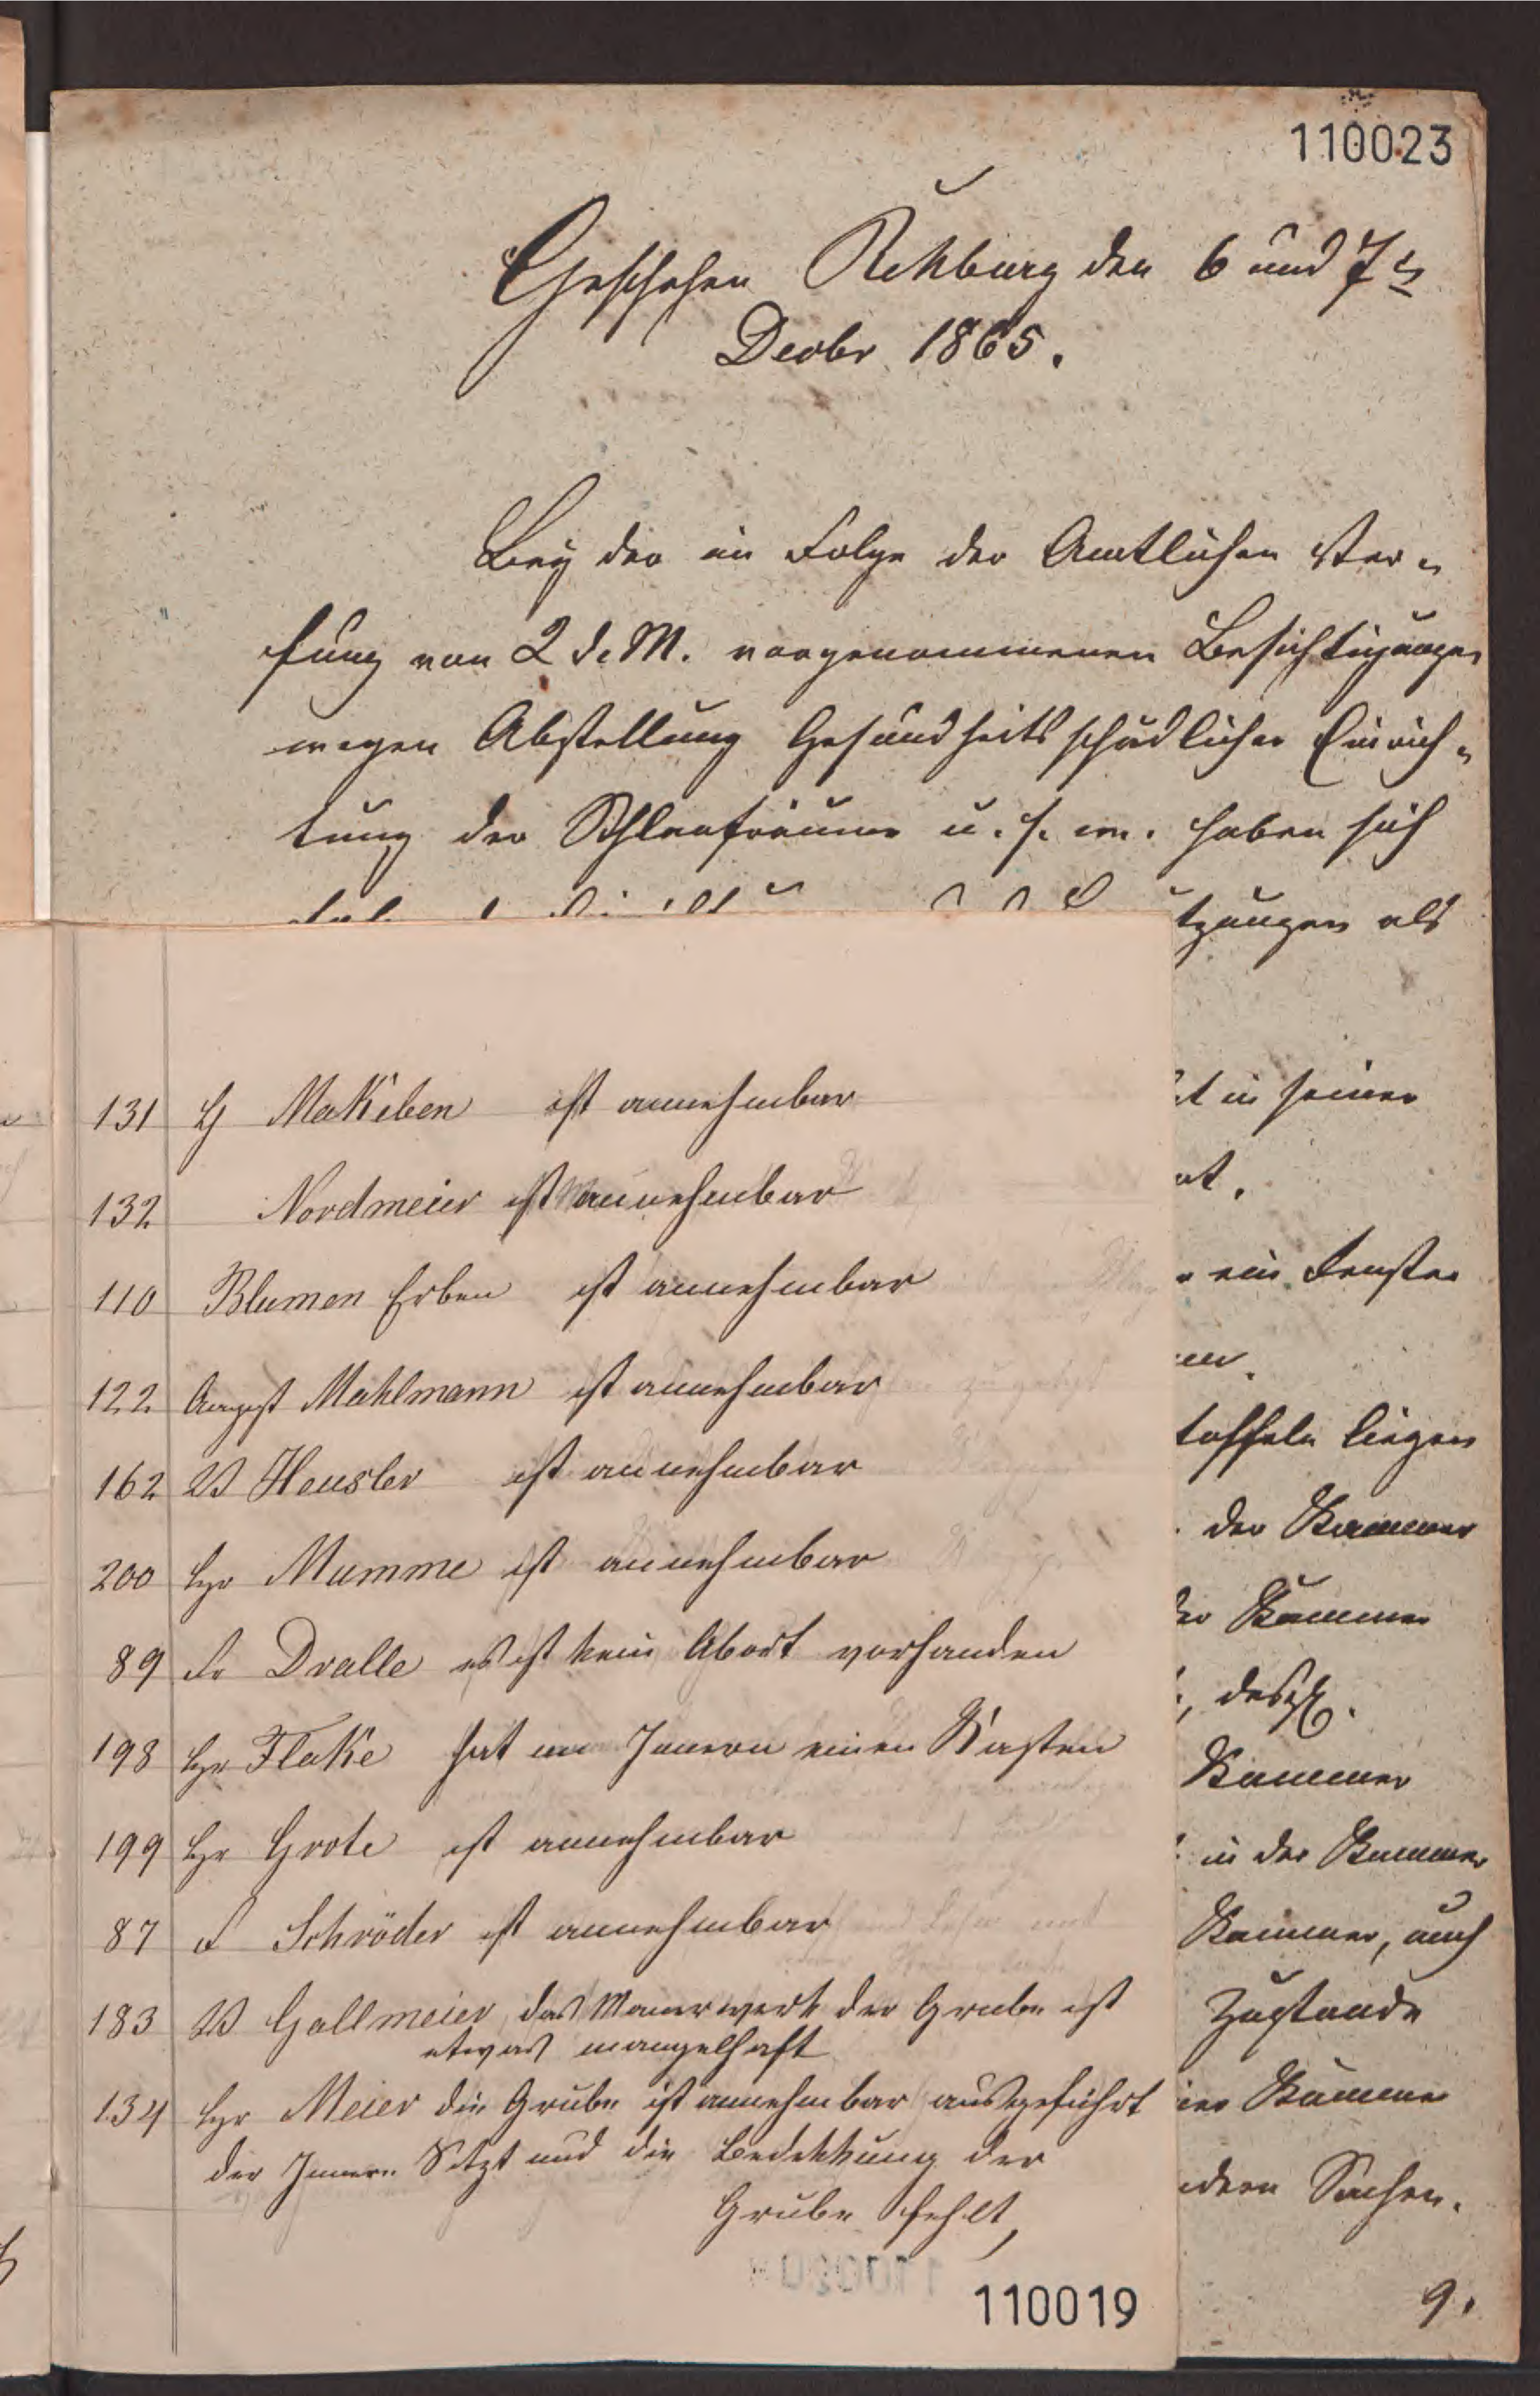 110023
Geschehen Rehburg den 6 und 7ten
Decbr 1865.
Bey der in Folge der Amtlichen Ver-
fung von 2 d. M. vorgenommenen Besichtigungen
wegen Abstellung Gesundheitsschädlicher Einrich-
tung der Schlafräume u. s. w. haben sich
tzungen als
t in seiner
at.
ein Fenster
en.
toffeln liegen
der Kammer
der Kammer
, desgl.
Kammer
in der Kammer
Kammer, auch
Zustande
Kammer
dern Sachen.
9.
131 H Makeben ist annehmbar
132 Nordmeier ist annehmbar
110 Blumen Erben ist annehmbar
122 August Mahlmann ist annehmbar
162 W Heusler ist annehmbar
200 Hr Mumme ist annehmbar
89 Fr Dralle es ist kein Abort vorhanden
198 Hr Flake hat im Innern einen Kasten
199 Hr Grote ist annehmbar
87 F Schröder ist annehmbar
183 W Gallmeier, das Mauerwerk der Grube ist
etwas mangelhaft
134 Hr Meier die Grube ist annehmbar ausgeführt
der Innere Sitzt und die Bedekkung der
Grube fehlt,
110019